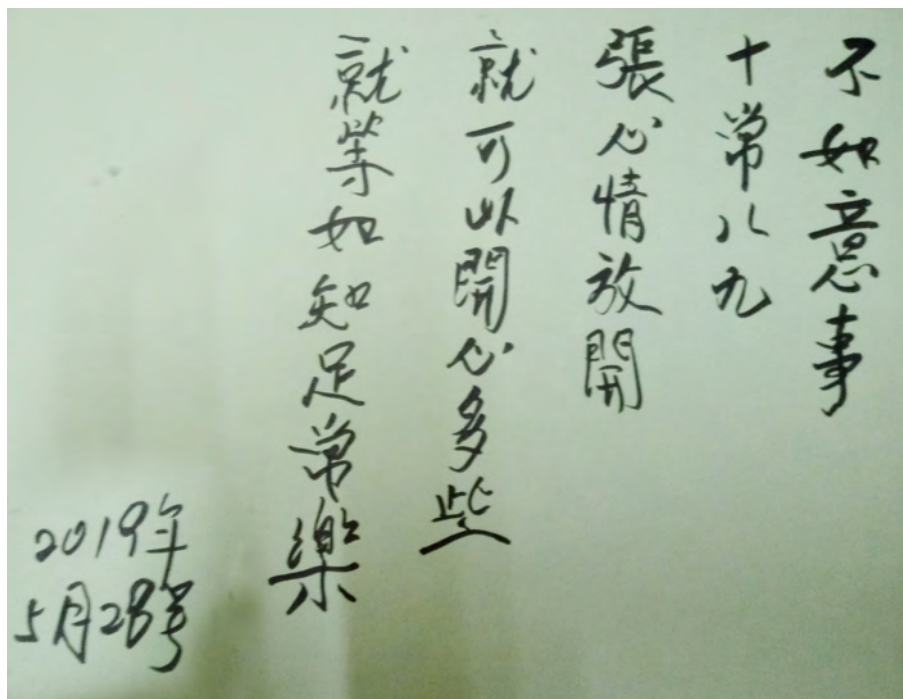 不如意事
十常八九
張心情放開
就可以開心多些
就等如知足常樂
2019年
5月28号